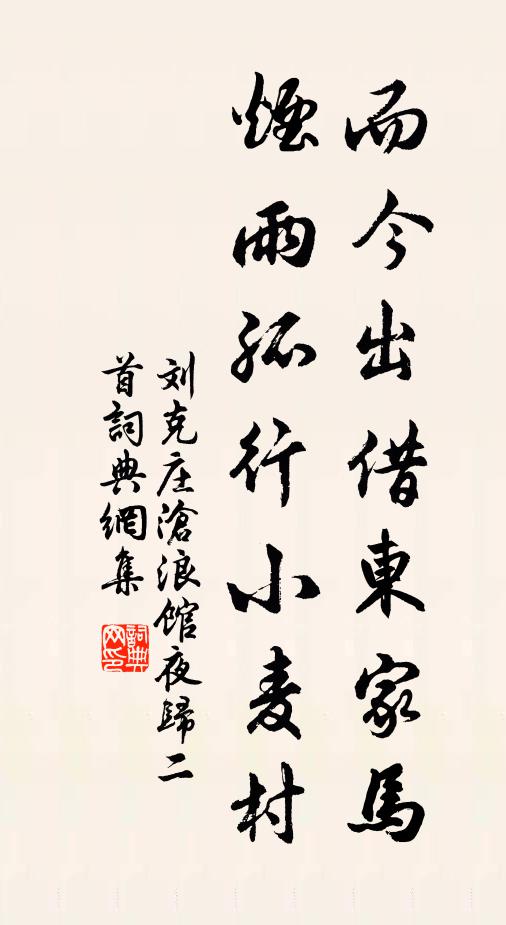 而今出借東家馬
煙雨孤行小麦村
刘克庄滄浪馆夜歸二
首詞典網集
詞典
网印